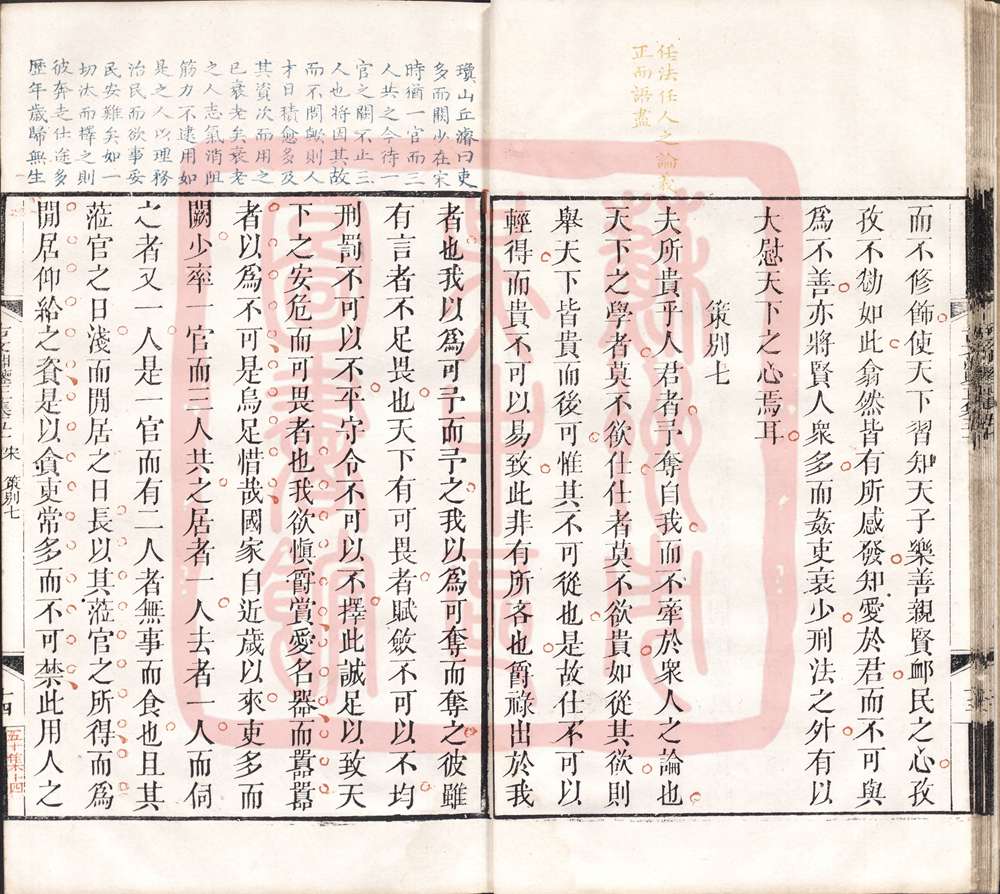 任法任人之論義
正而語盡
而不修飾使天下習知天子樂善親賢卹民之心孜
孜不勌如此翕然皆有所感發知愛於君而不可與
爲不善亦將賢人衆多而姦吏衰少刑法之外有以
大慰天下之心焉耳
策別七
夫所貴乎人君者予奪自我而不牽於衆人之論也
天下之學者莫不欲仕仕者莫不欲貴如從其欲則
舉天下皆貴而後可惟其不可從也是故仕不可以
輕得而貴不可以易致此非有所吝也爵祿出於我
瓊山丘濬曰吏
多而闕少在宋
時猶一官而三
人共之今待一
官之闕不止三
人也將因其故
而不問歟則人
才日積愈多及
其資次而用之
已衰老矣衰老
之人志氣消阻
筋力不逮用如
是之人以理務
治民而欲事妥
民安難矣如一
切汰而擇之則
彼奔走仕途多
歷年歲歸無生
者也我以爲可予而予之我以爲可奪而奪之彼雖
有言者不足畏也天下有可畏者賦斂不可以不均
刑罰不可以不平守令不可以不擇此誠足以致天
下之安危而可畏者也我欲愼爵賞愛名器而囂囂
者以爲不可是烏足惜哉國家自近歲以來吏多而
闕少率一官而三人共之居者一人去者一人而伺
之者又一人是一官而有二人者無事而食也且其
蒞官之日淺而閒居之日長以其蒞官之所得而爲
閒居仰給之資是以貪吏常多而不可禁此用人之
宋
策別七
十四
五十集十四